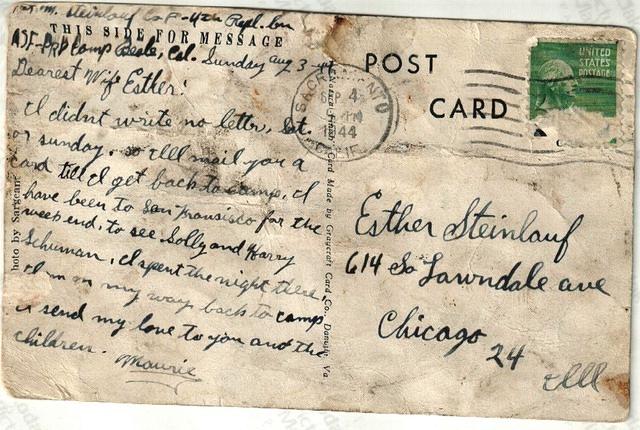 m. Steinlauf Co F - 4th Repl. Bn
THIS SIDE FOR MESSAGE
ASF-PRD Camp Beale, Cal. Sunday Aug 3-44
Dearest Wife Esther:
I didnt write no letter, Sat.
or sunday. so Ill mail you a
card till I get back to camp, I
have been to San Fransisco for the
week end, to see Solly and Harry
Schuman, I spent the night there,
I m on my way back to camp
I send my love to you and the
children.
Maurie
hoto by Sargeant
Natural Finish Card Made by Graycraft Card Co., Danville, Va.
POST
CARD
SACRAMENTO
4
PM
1944
CALIF.
UNITED
STATES
POSTAGE
Esther Steinlauf
614 So Lawndale ave
Chicago
24
Ill